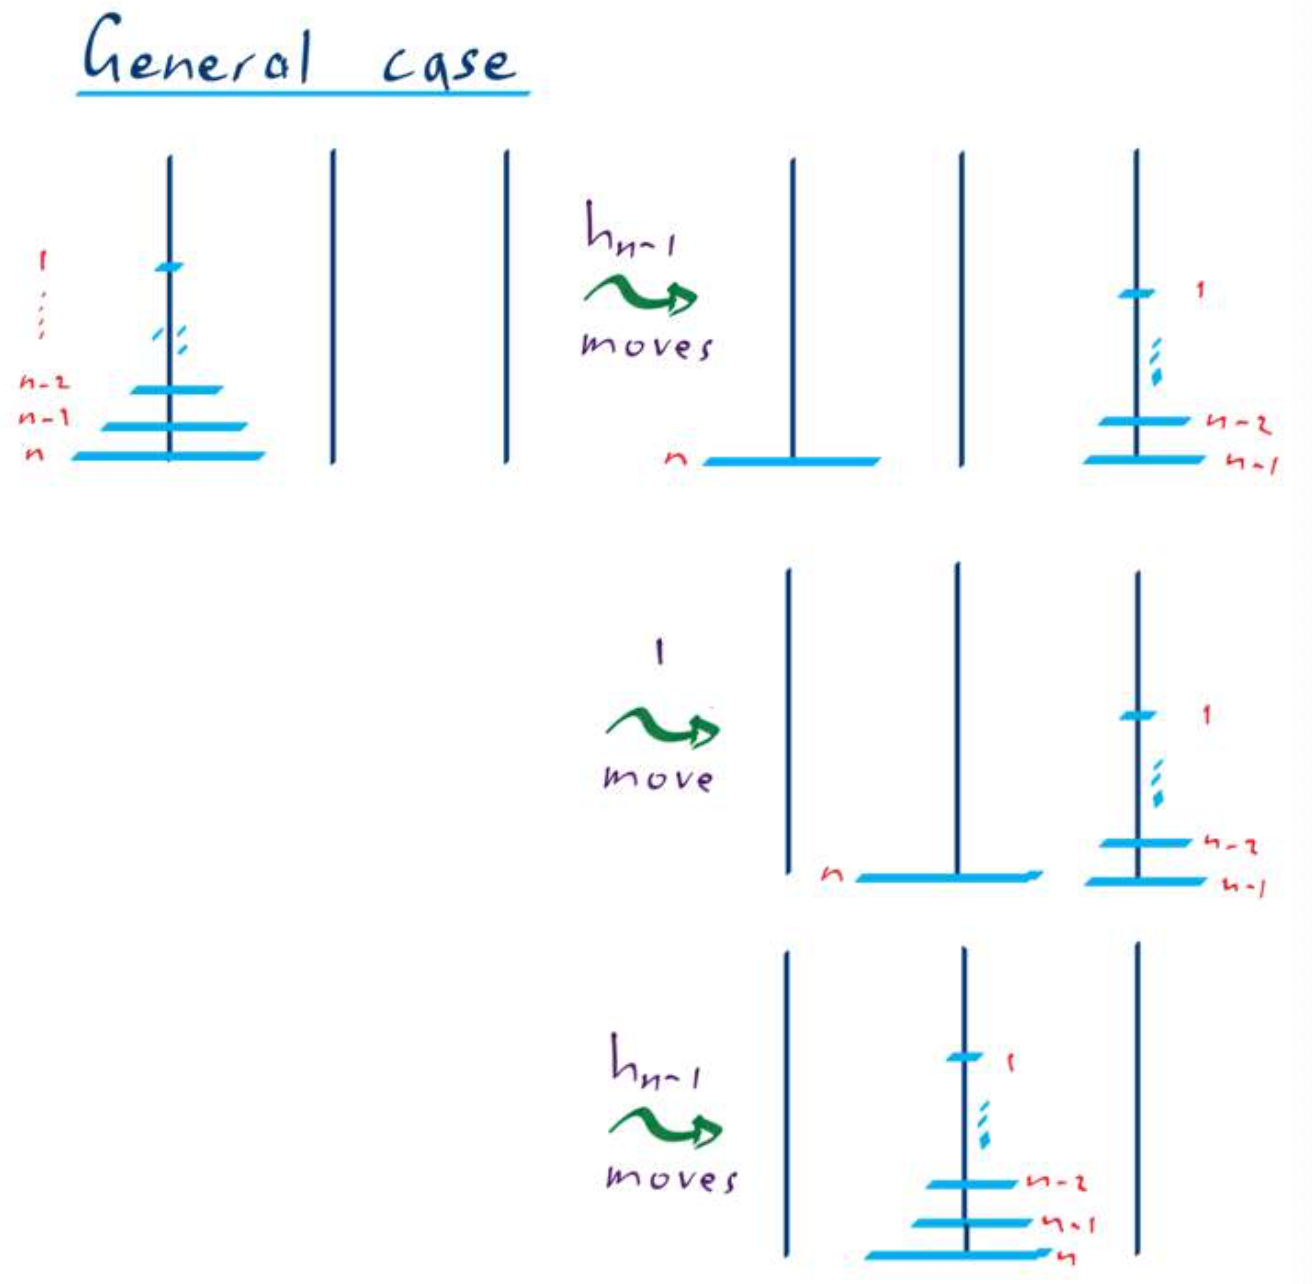 General case
1
n-2
n-1
n
h_{n-1}
moves
n
1
n-2
n-1
1
move
n
1
n-2
n-1
h_{n-1}
moves
1
n-2
n-1
n